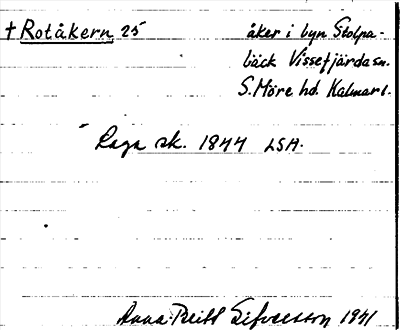 † Rotåkern 25 åker i byn Stolpa-
bäck Vissefjärda sn.
S. Möre hd. Kalmar l.
Laga sk. 1844 LSA.
Anna-Britt Sifversson 1971